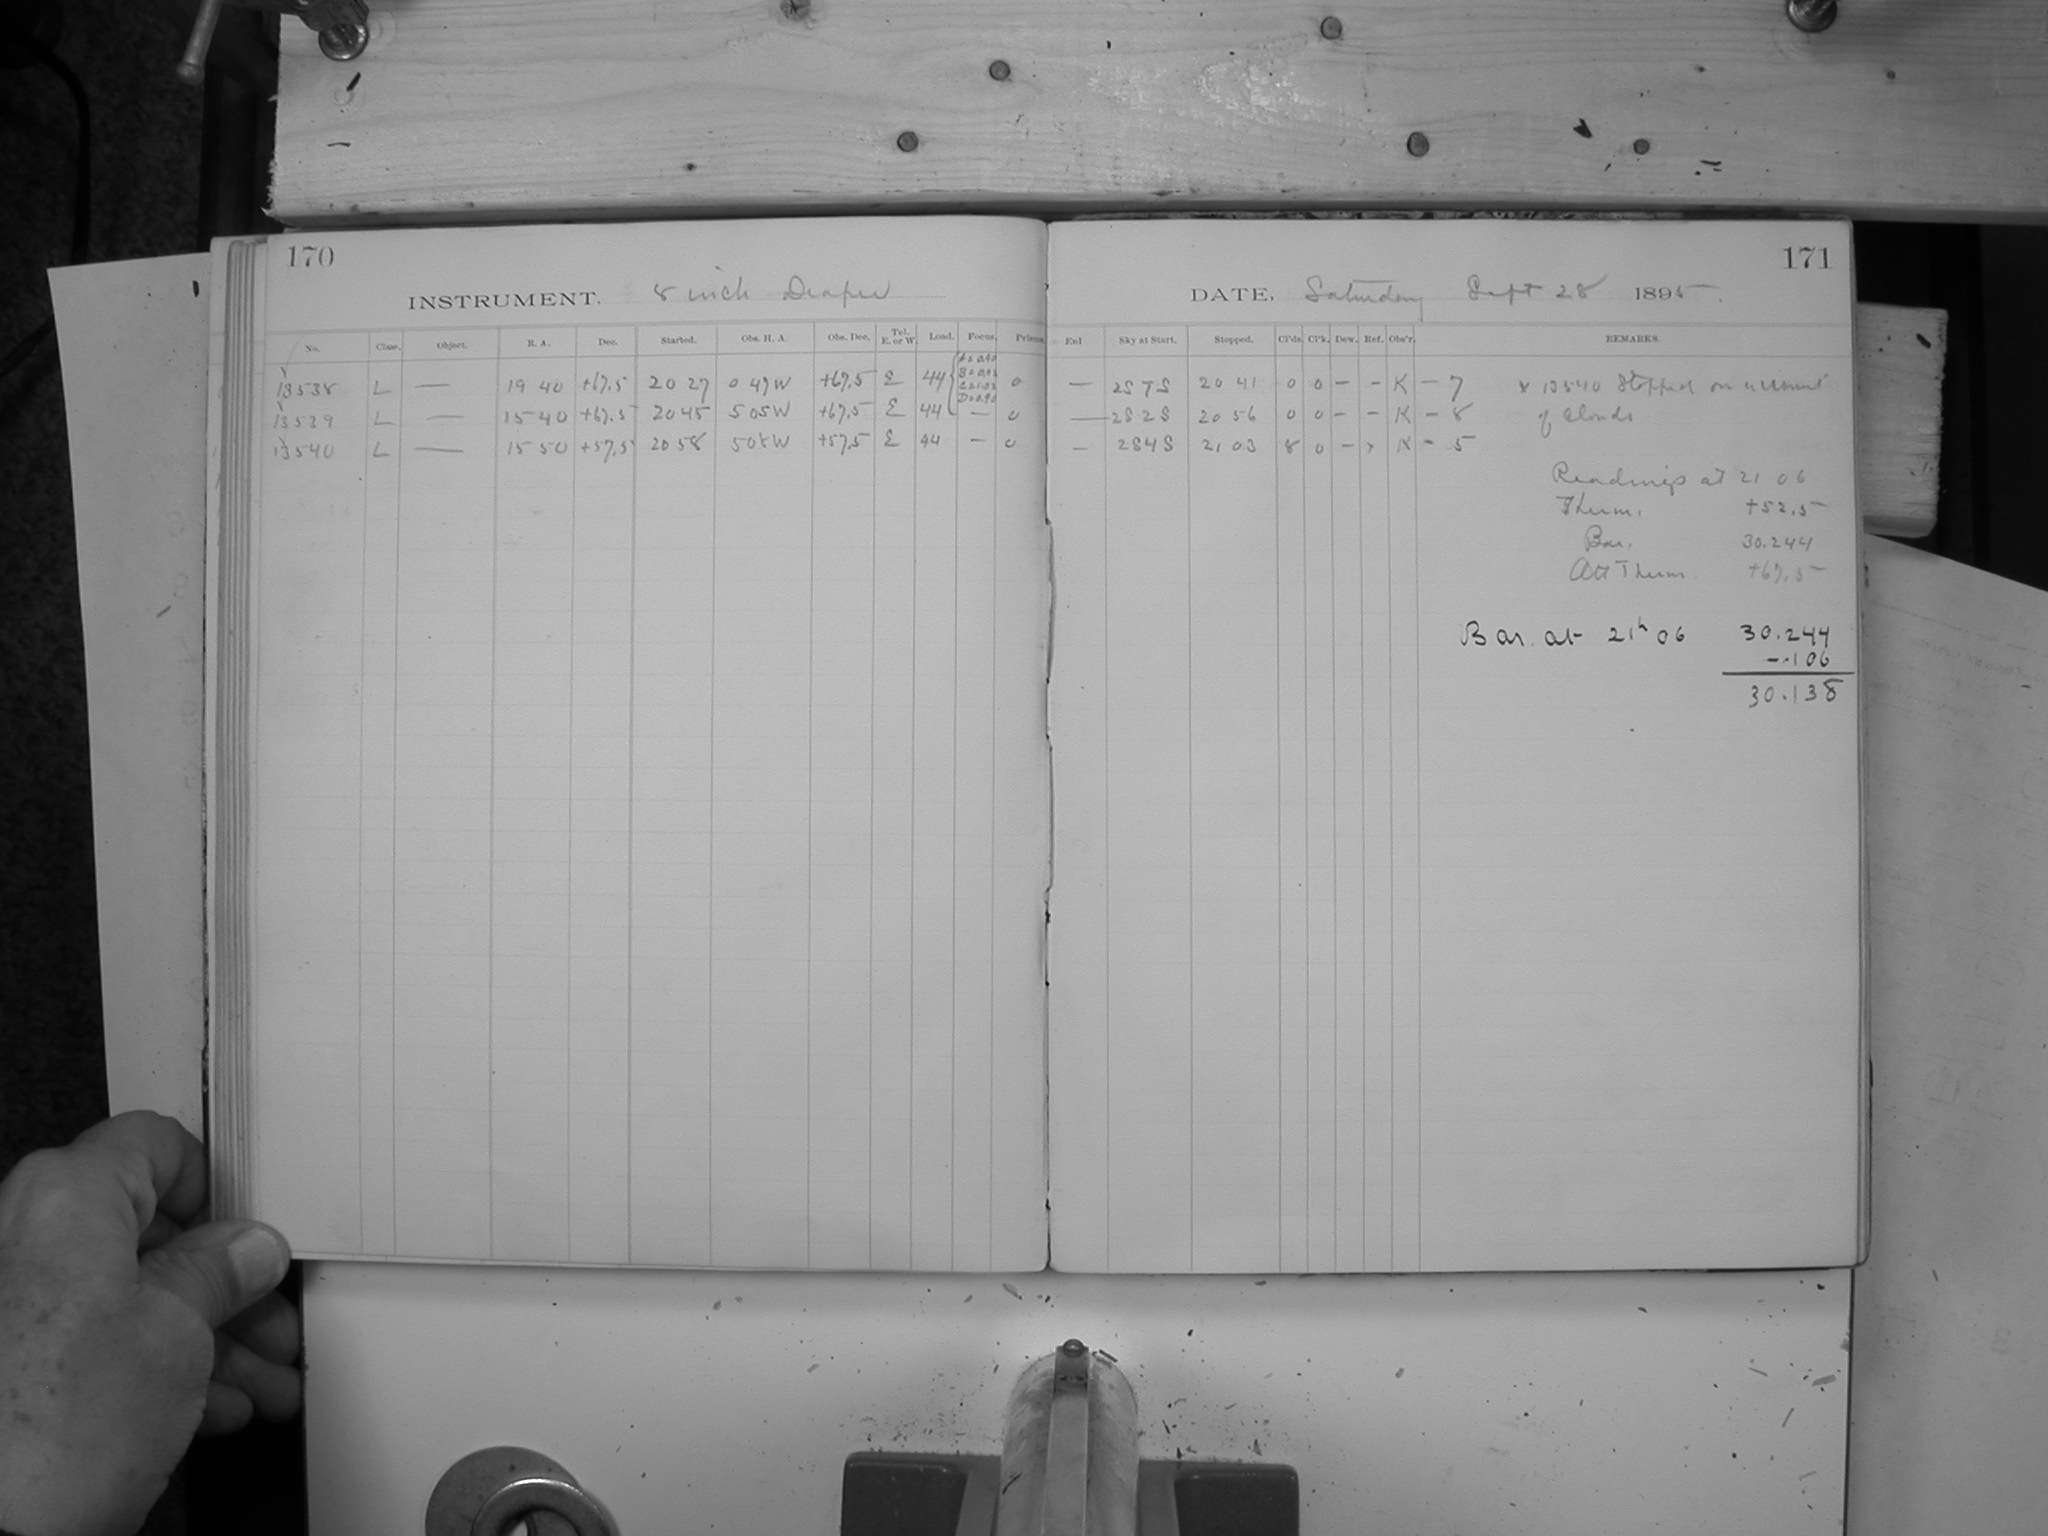 170
INSTRUMENT. 8 inch Draper
No. Class. Object. R. A. Dec. Started. Obs. H. A. Obs. Dec. Tel. E. or W. Load. Focus. Prism.
13538 L — 19 40 +67.5 20 27 0 47 W +67.5 E 44 0
13539 L — 15 40 +67.5 20 45 5 05 W +67.5 E 44 — 0
13540 L — 15 50 +57.5 20 58 5 08 W +57.5 E 44 — 0
171
DATE. Saturday Sept 28 1895.
Exl Sky at Start. Stopped. Cl'ds. Cl'k. Dew. Ref. Obs'r. REMARKS.
— 2S 7S 20 41 0 0 – – K – 7 x 13540 Stopped on account
— 2S 2S 20 56 0 0 – – K – 8 of clouds
— 2S 4S 21 03 8 0 – x K – 5
Readings at 21 06
Therm. +52.5
Bar. 30.244
Att Therm. +67.5
Bar. at 21h 06 30.244
-.106
30.138